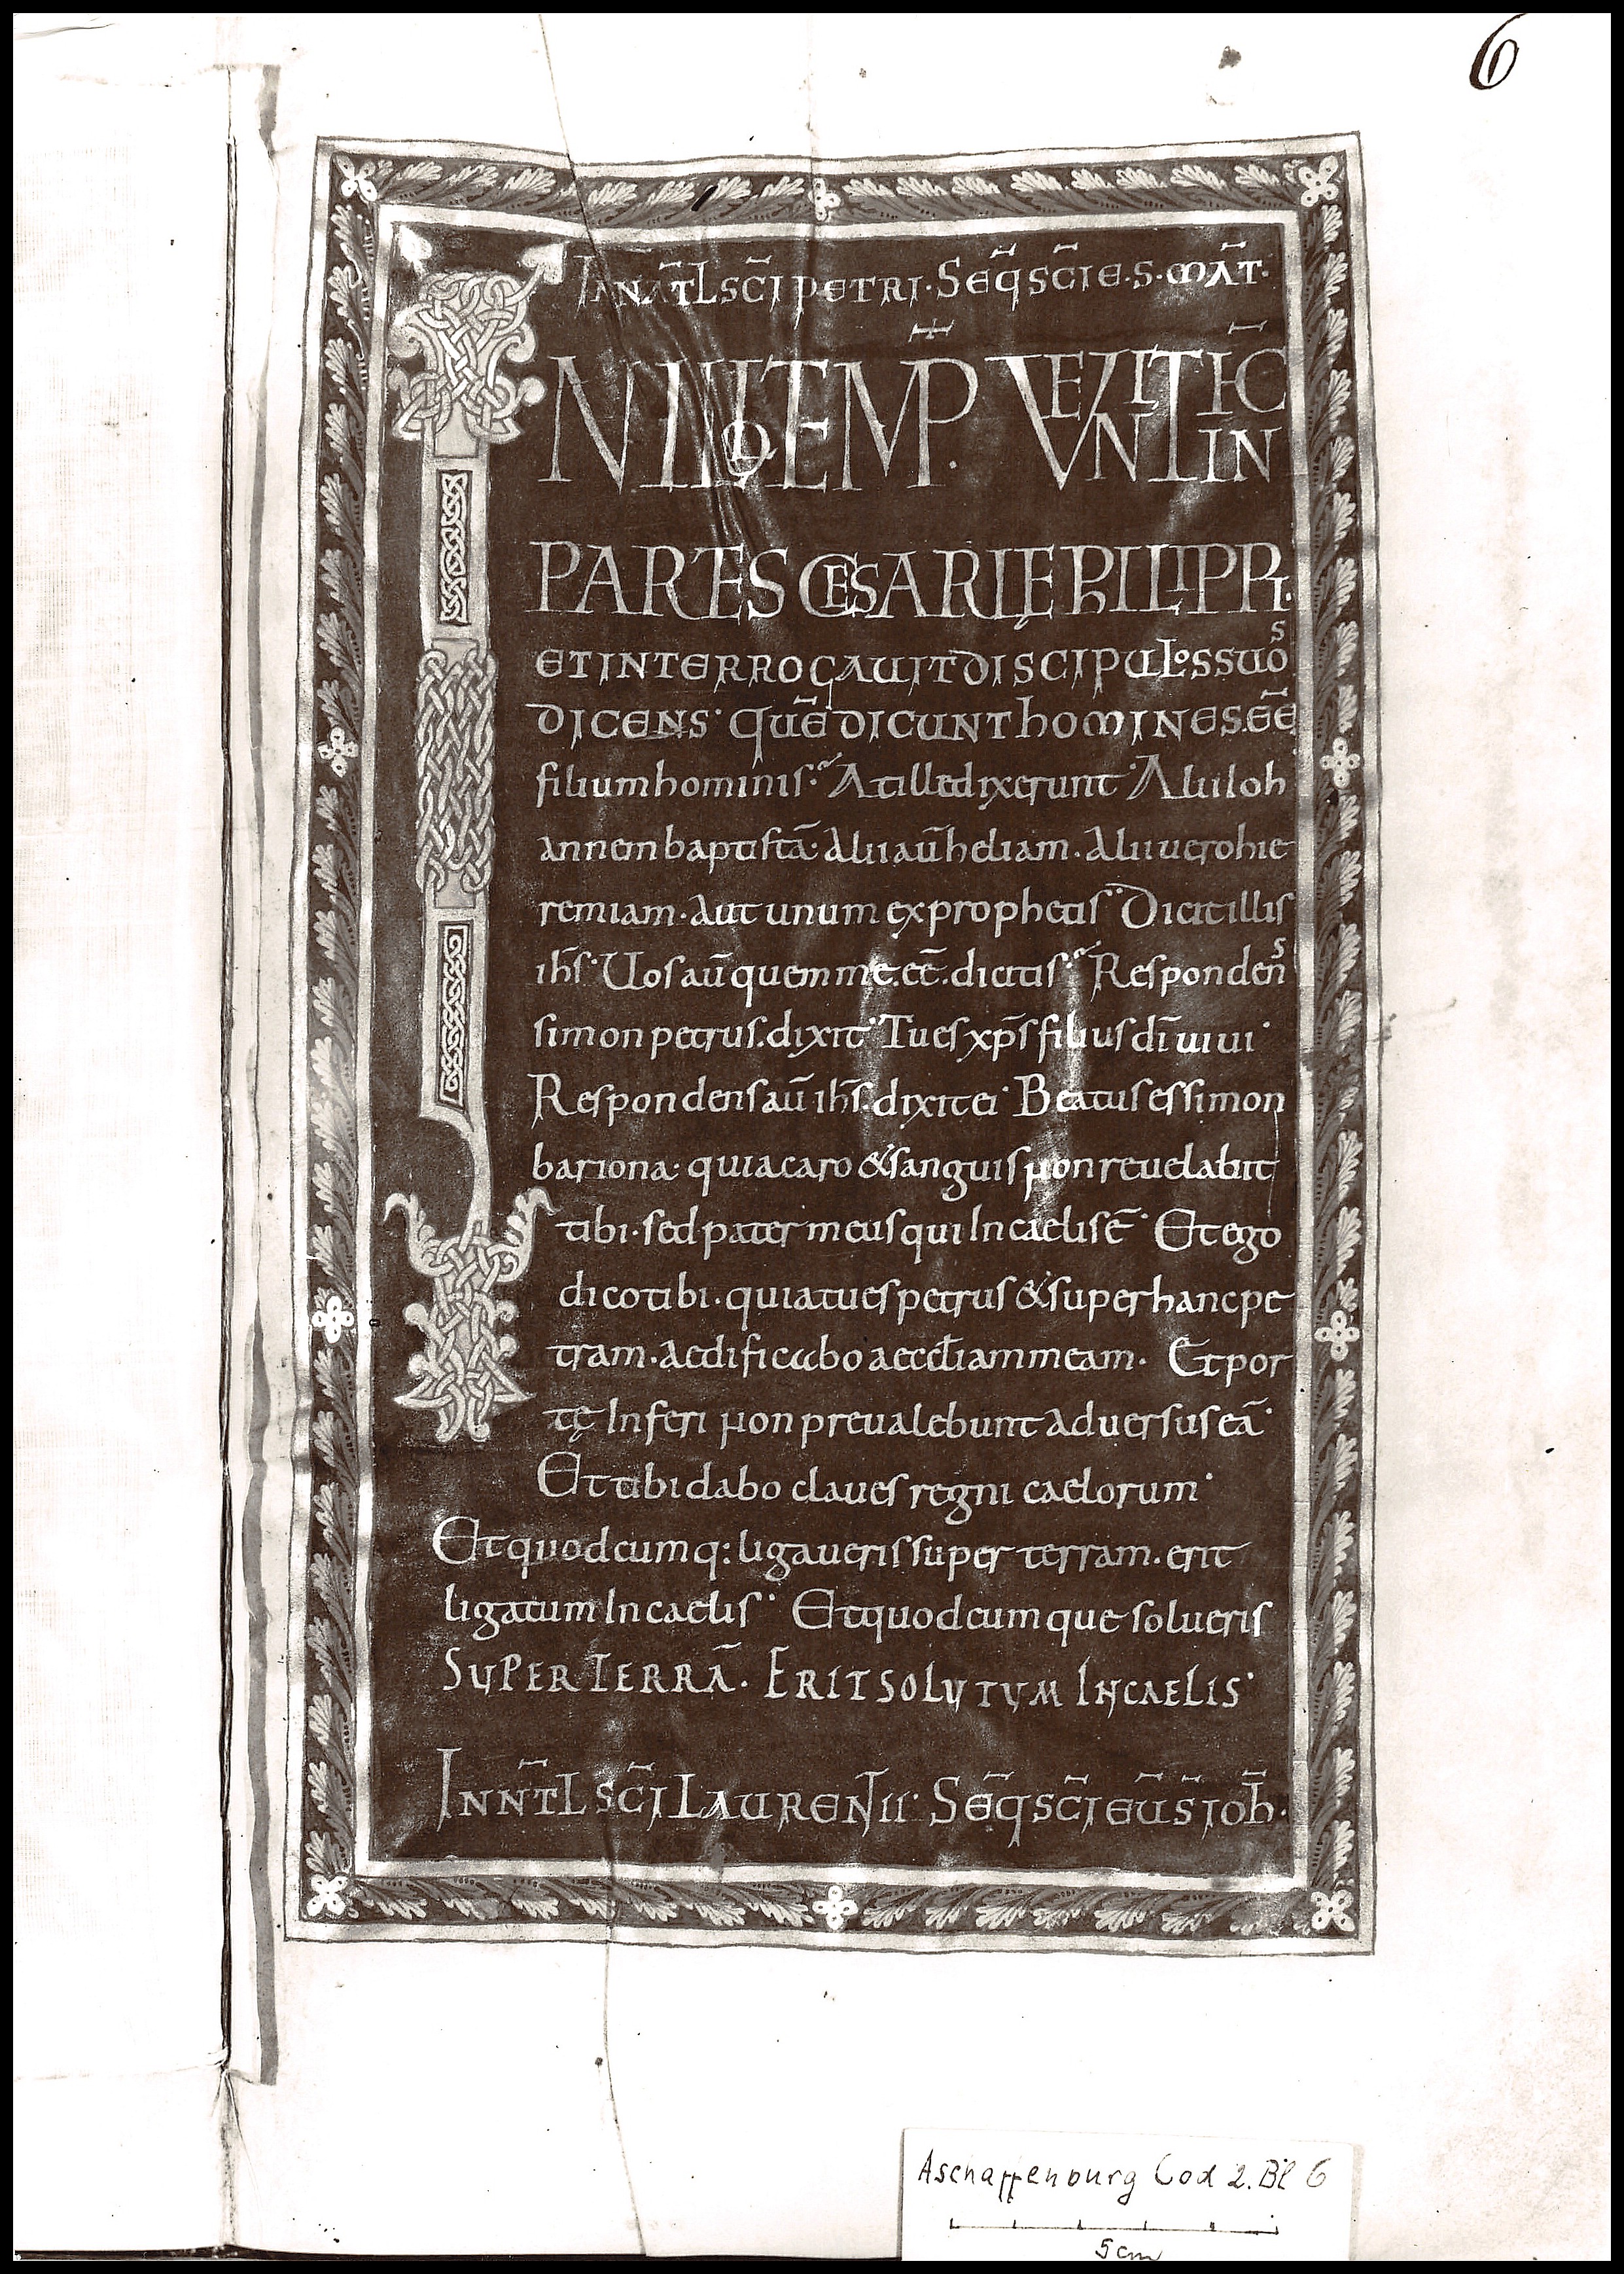 6
IN NAT̄L SC̄I PETRI· SEQ̄ SC̄I E·S· MAT̄·
IN ILLO TEMP̄· VENIT IH̄C IN
PARTES CESARIĘ PHILIPPI·
ET INTERROGAUIT DISCIPULOS SUOS
DICENS· QUĒ DICUNT HOMINES·EĒ
filium hominis· At illi dixerunt· Alii ioh
annem baptistā· alii aū heliam· alii uero hie
remiam· aut unum ex prophetis· Dicit illis
ih̄s· Uos aū quem me·eē·dicitis· Respondens
simon petrus·dixit· Tu es xp̄s filius dī uiui·
Respondens aū ih̄s·dixit ei· Beatus es simon
bariona· quia caro & sanguis non reuelabit
tibi·sed pater meus qui In caelis ē· Et ego
dico tibi·quia tu es petrus & super hanc pe
tram·aedificabo aeccl̄iam meam· Et por
tę Inferi non preualebunt aduersus eā·
Et tibi dabo claues regni caelorum·
Et quodcumq: ligaueris super terram·erit
ligatum In caelis· Et quodcumque solueris
SUPER TERRĀ· ERIT SOLUTUM IN CAELIS·
IN NT̄L SC̄I LAURENTII· SEQ̄ SC̄I EŪ S̄ IOH̄·
Aschaffenburg Cod 2. Bl 6
5 cm